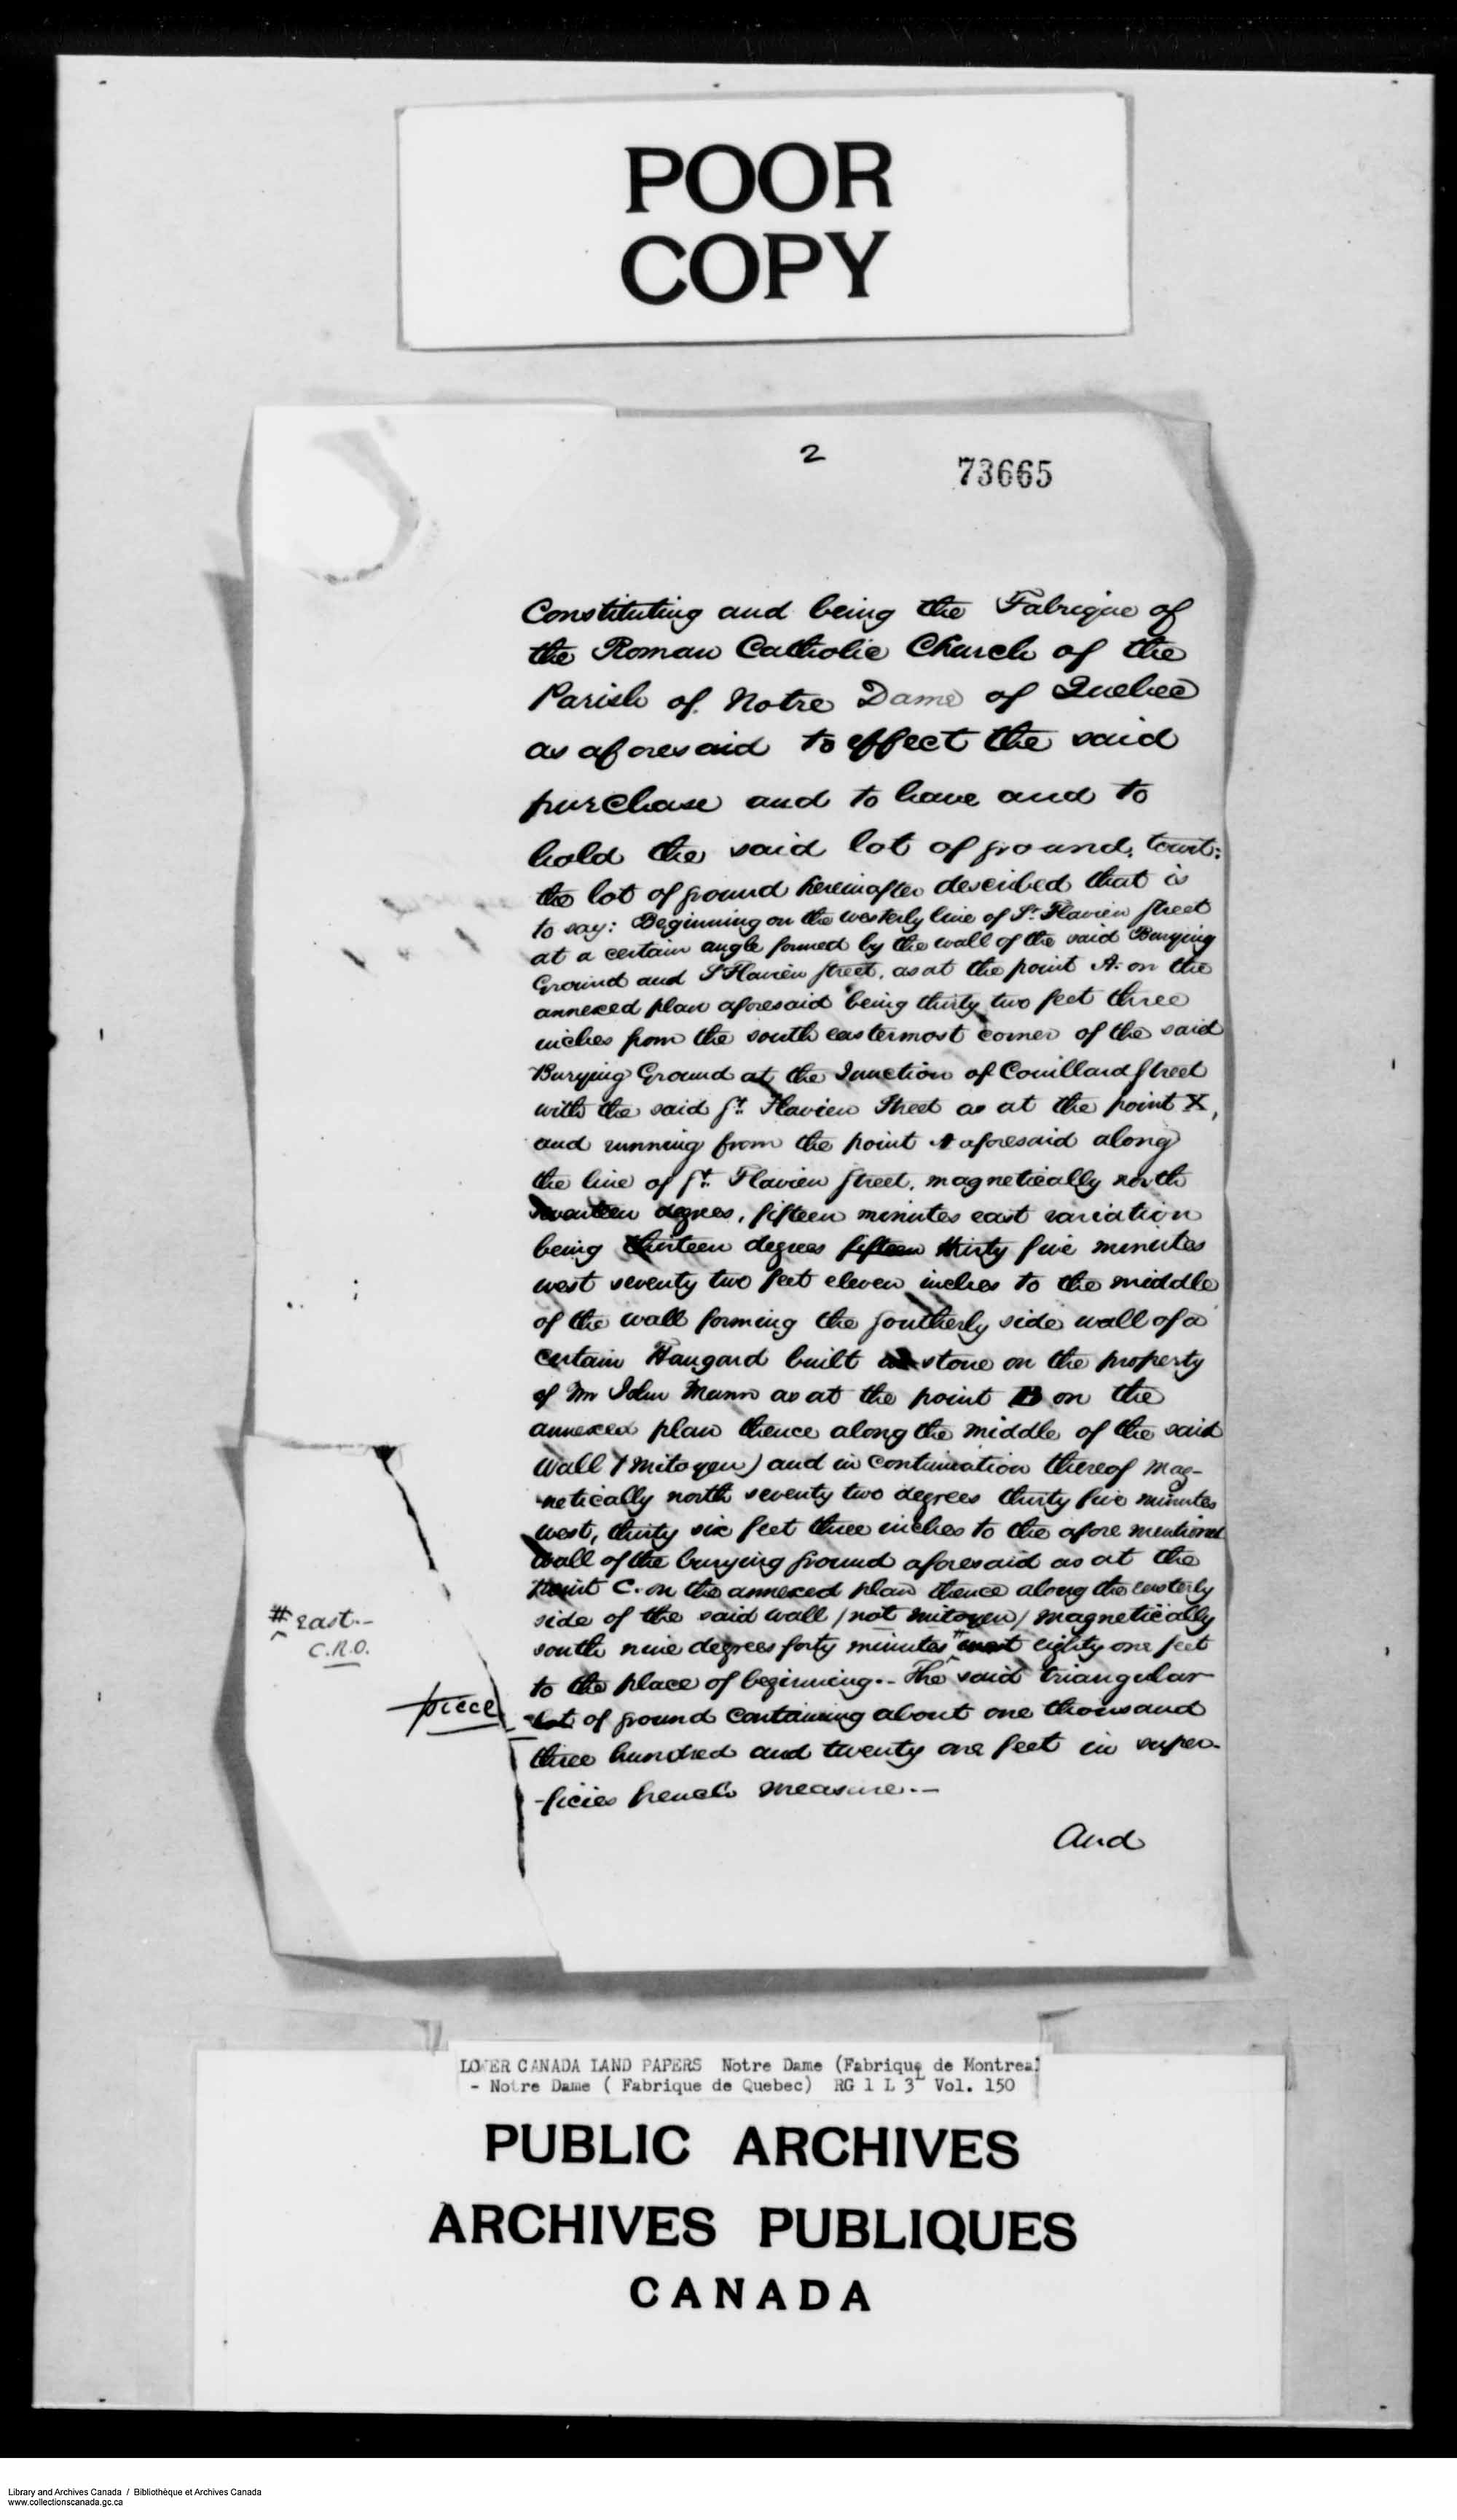 POOR
COPY
2
73665
Constituting and being the Fabrique of
the Roman Catholic Church of the
Parish of Notre Dame of Quebec
as aforesaid to effect the said
purchase and to have and to
hold the said lot of ground, towit:
the lot of ground hereinafter described that is
to say: Beginning on the westerly line of St. Flavien Street
at a certain angle formed by the wall of the said Burying
Ground and St Flavien Street, as at the point A. on the
annexed plan aforesaid being thirty two feet three
inches from the south easternmost corner of the said
Burying Ground at the Junction of Couillard Street
with the said St. Flavien Street as at the point X,
and running from the point A aforesaid along
the line of St. Flavien Street, magnetically north
seventeen degrees, fifteen minutes east variation
being thirteen degrees fifteen thirty five minutes
west seventy two feet eleven inches to the middle
of the wall forming the southerly side wall of a
certain Hangard built stone on the property
of Mr John Munn as at the point B on the
annexed plan thence along the middle of the said
Wall (mitoyen) and in continuation thereof mag-
-netically north seventy two degrees thirty five minutes
west, thirty six feet three inches to the afore mentioned
wall of the burying ground aforesaid as at the
point C. on the annexed plan thence along the easterly
side of the said wall (not mitoyen) magnetically
south nine degrees forty minutes # west eighty one feet
# east.-
C.R.O.
to the place of beginning.- The said triangular
piece
lot of ground containing about one thousand
three hundred and twenty one feet in super-
-ficies french measure.-
And
LOWER CANADA LAND PAPERS Notre Dame (Fabrique de Montreal
- Notre Dame ( Fabrique de Quebec) RG 1 L 3L Vol. 150
PUBLIC ARCHIVES
ARCHIVES PUBLIQUES
CANADA
Library and Archives Canada / Bibliothèque et Archives Canada
www.collectionscanada.gc.ca